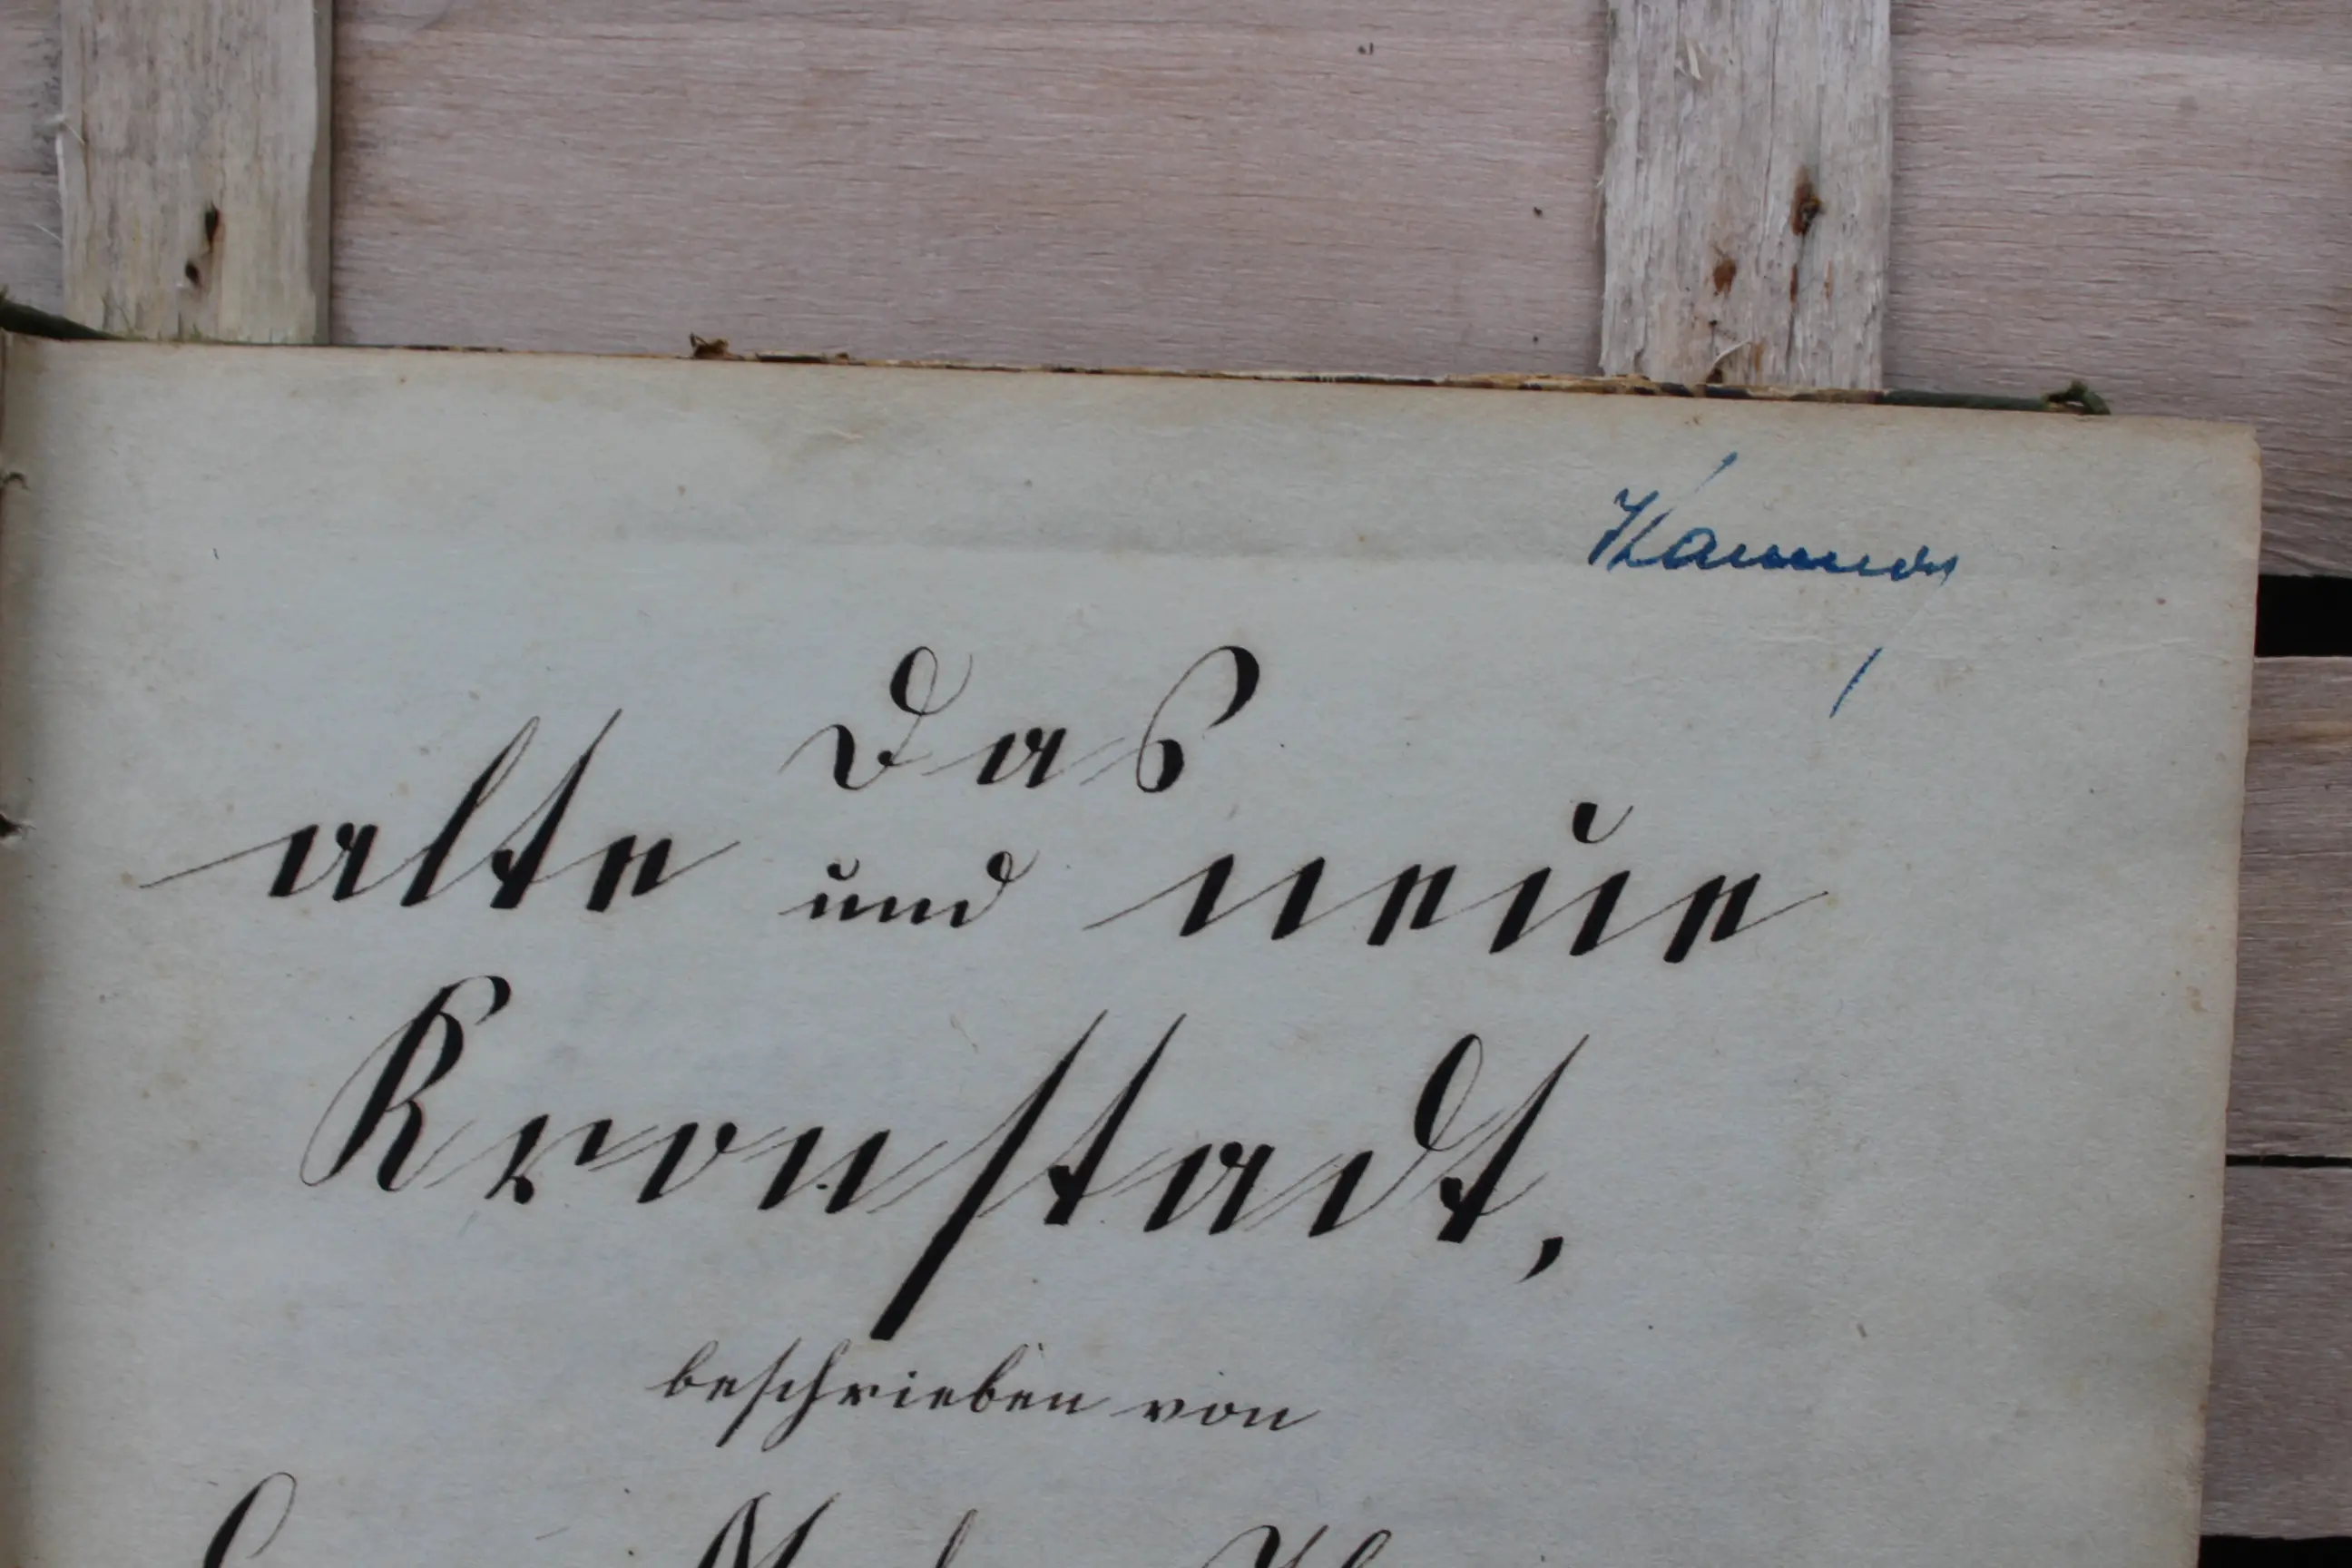 Das
alte und neue
Kronstadt,
beschrieben von